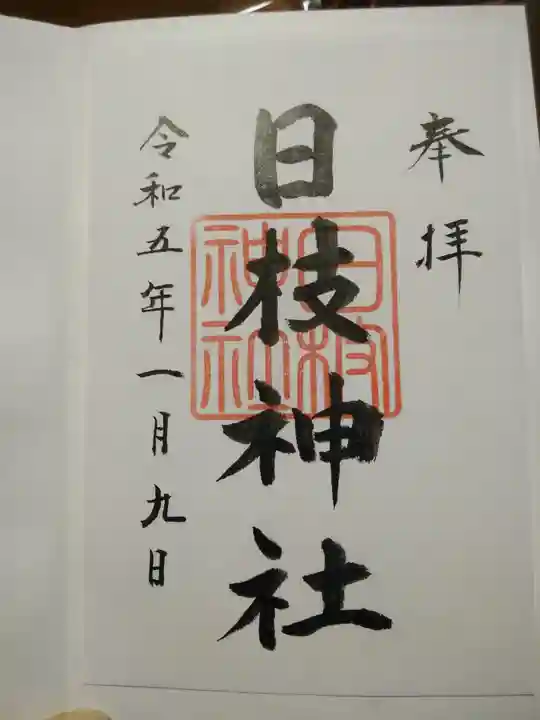 奉拝
日枝神社
日枝
神社
令和五年一月九日